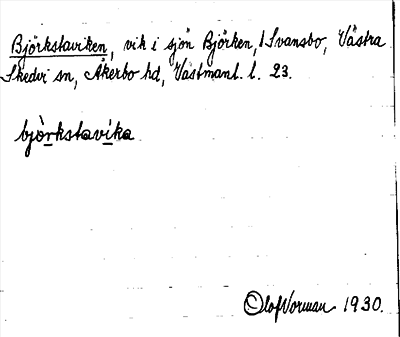 Björkstaviken, vik i sjön Björken, i Svansbo, Västra
Skedvi sn, Åkerbo hd, Västmanl. l. 23.
bjò̱rkstavi̱ka
Olof Norman 1930.